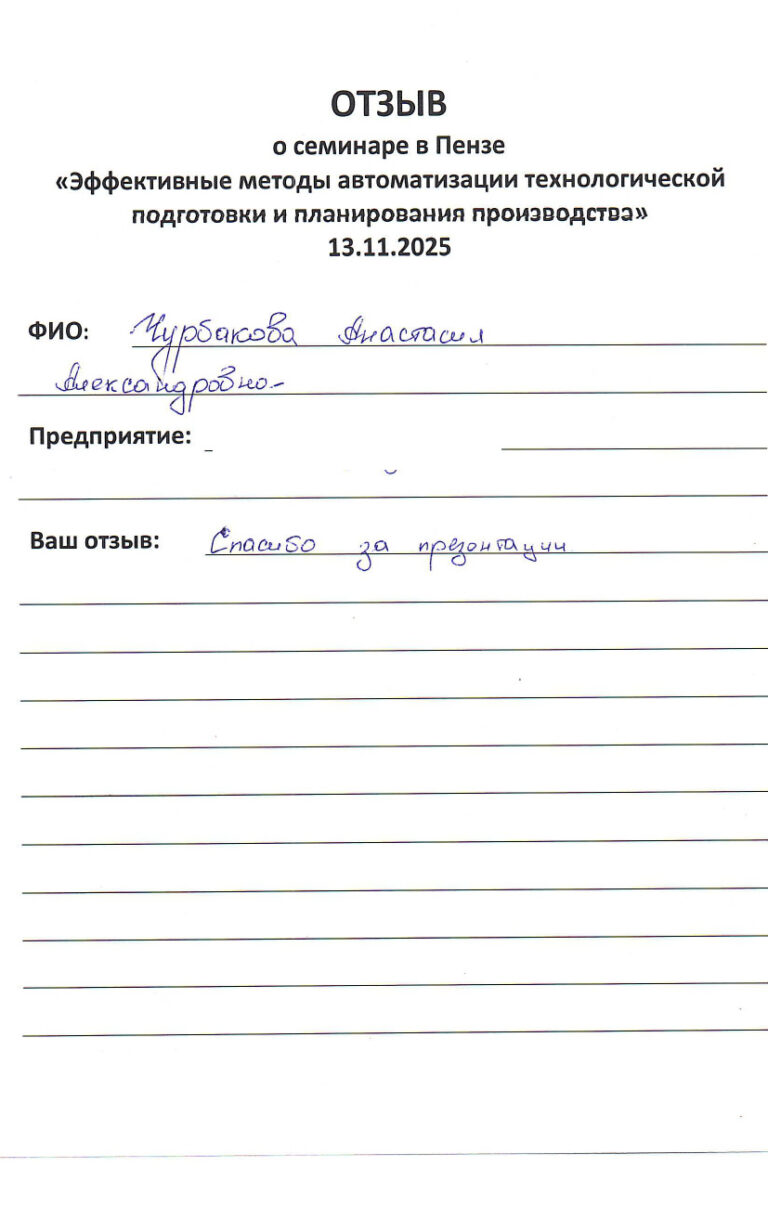 ОТЗЫВ
о семинаре в Пензе
«Эффективные методы автоматизации технологической
подготовки и планирования производства»
13.11.2025
ФИО: Чурбакова Анастасия
Александровна
Предприятие:
Ваш отзыв: Спасибо за презентации